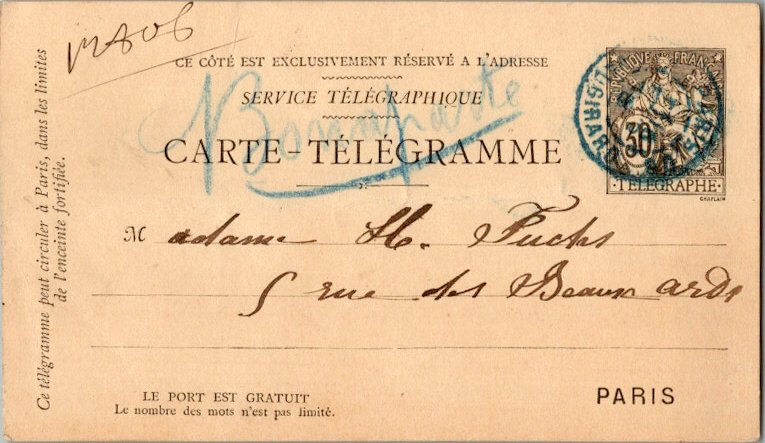 12806
CE CÔTÉ EST EXCLUSIVEMENT RÉSERVÉ A L'ADRESSE
SERVICE TÉLÉGRAPHIQUE
Bonaparte
CARTE-TÉLÉGRAMME
RÉPUBLIQUE FRANÇAISE
30
TÉLÉGRAPHE
CHAPLAIN
Madame H. Fuchs
5 rue des Beaux arts
Ce télégramme peut circuler à Paris, dans les limites
de l'enceinte fortifiée.
LE PORT EST GRATUIT
Le nombre des mots n'est pas limité.
PARIS